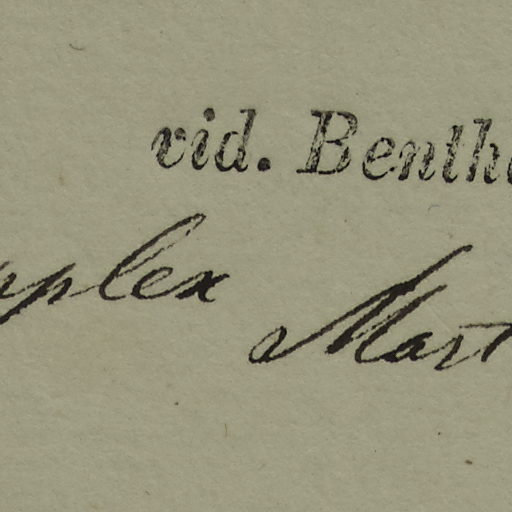 vid. Benth
plex Mart